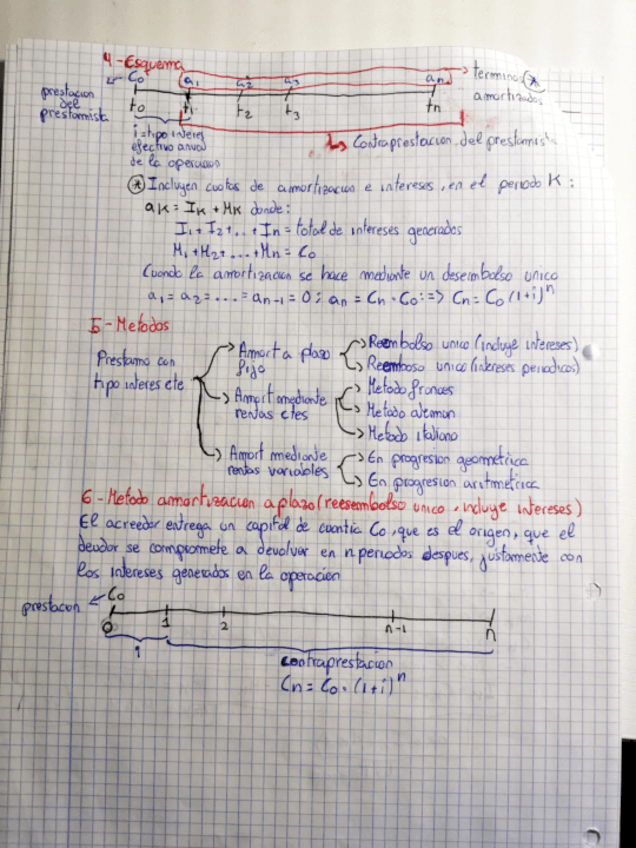 4-Esquema
Co a1 a2 a3 an → terminos *
prestacion amortizados
del to t1 t2 t3 tn
prestamista
i=tipo interes Contraprestacion del prestamista
efectivo anual
de la operacion
* Incluyen cuotas de amortizacion e intereses, en el periodo K:
aK = IK + MK donde:
I1+I2+...+In = total de intereses generados
M1+M2+...+Mn = Co
Cuando la amortizacion se hace mediante un desembolso unico
a1 = a2 = .... = an-1 = 0; an = Cn · Co :=> Cn = Co (1+i)^n
5-Metodos
Prestamo con
tipo interes cte
Amort a plazo
fijo
Reembolso unico (incluye intereses)
Reemboso unico (intereses periodicos)
Amort mediante
rentas ctes
Metodo frances
Metodo aleman
Metodo italiano
Amort mediante
rentas variables
En progresion geometrica
En progresion aritmetrica
6-Metodo amortizacion a plazo (reesembolso unico, incluye intereses)
El acreedor entrega un capital de cuantia Co, que es el origen, que el
deudor se compromete a devolver en n periodos despues, justamente con
los intereses generados en la operación
Co
prestacon
0 1 2 n-1 n
1
contraprestacion
Cn = Co · (1+i)^n